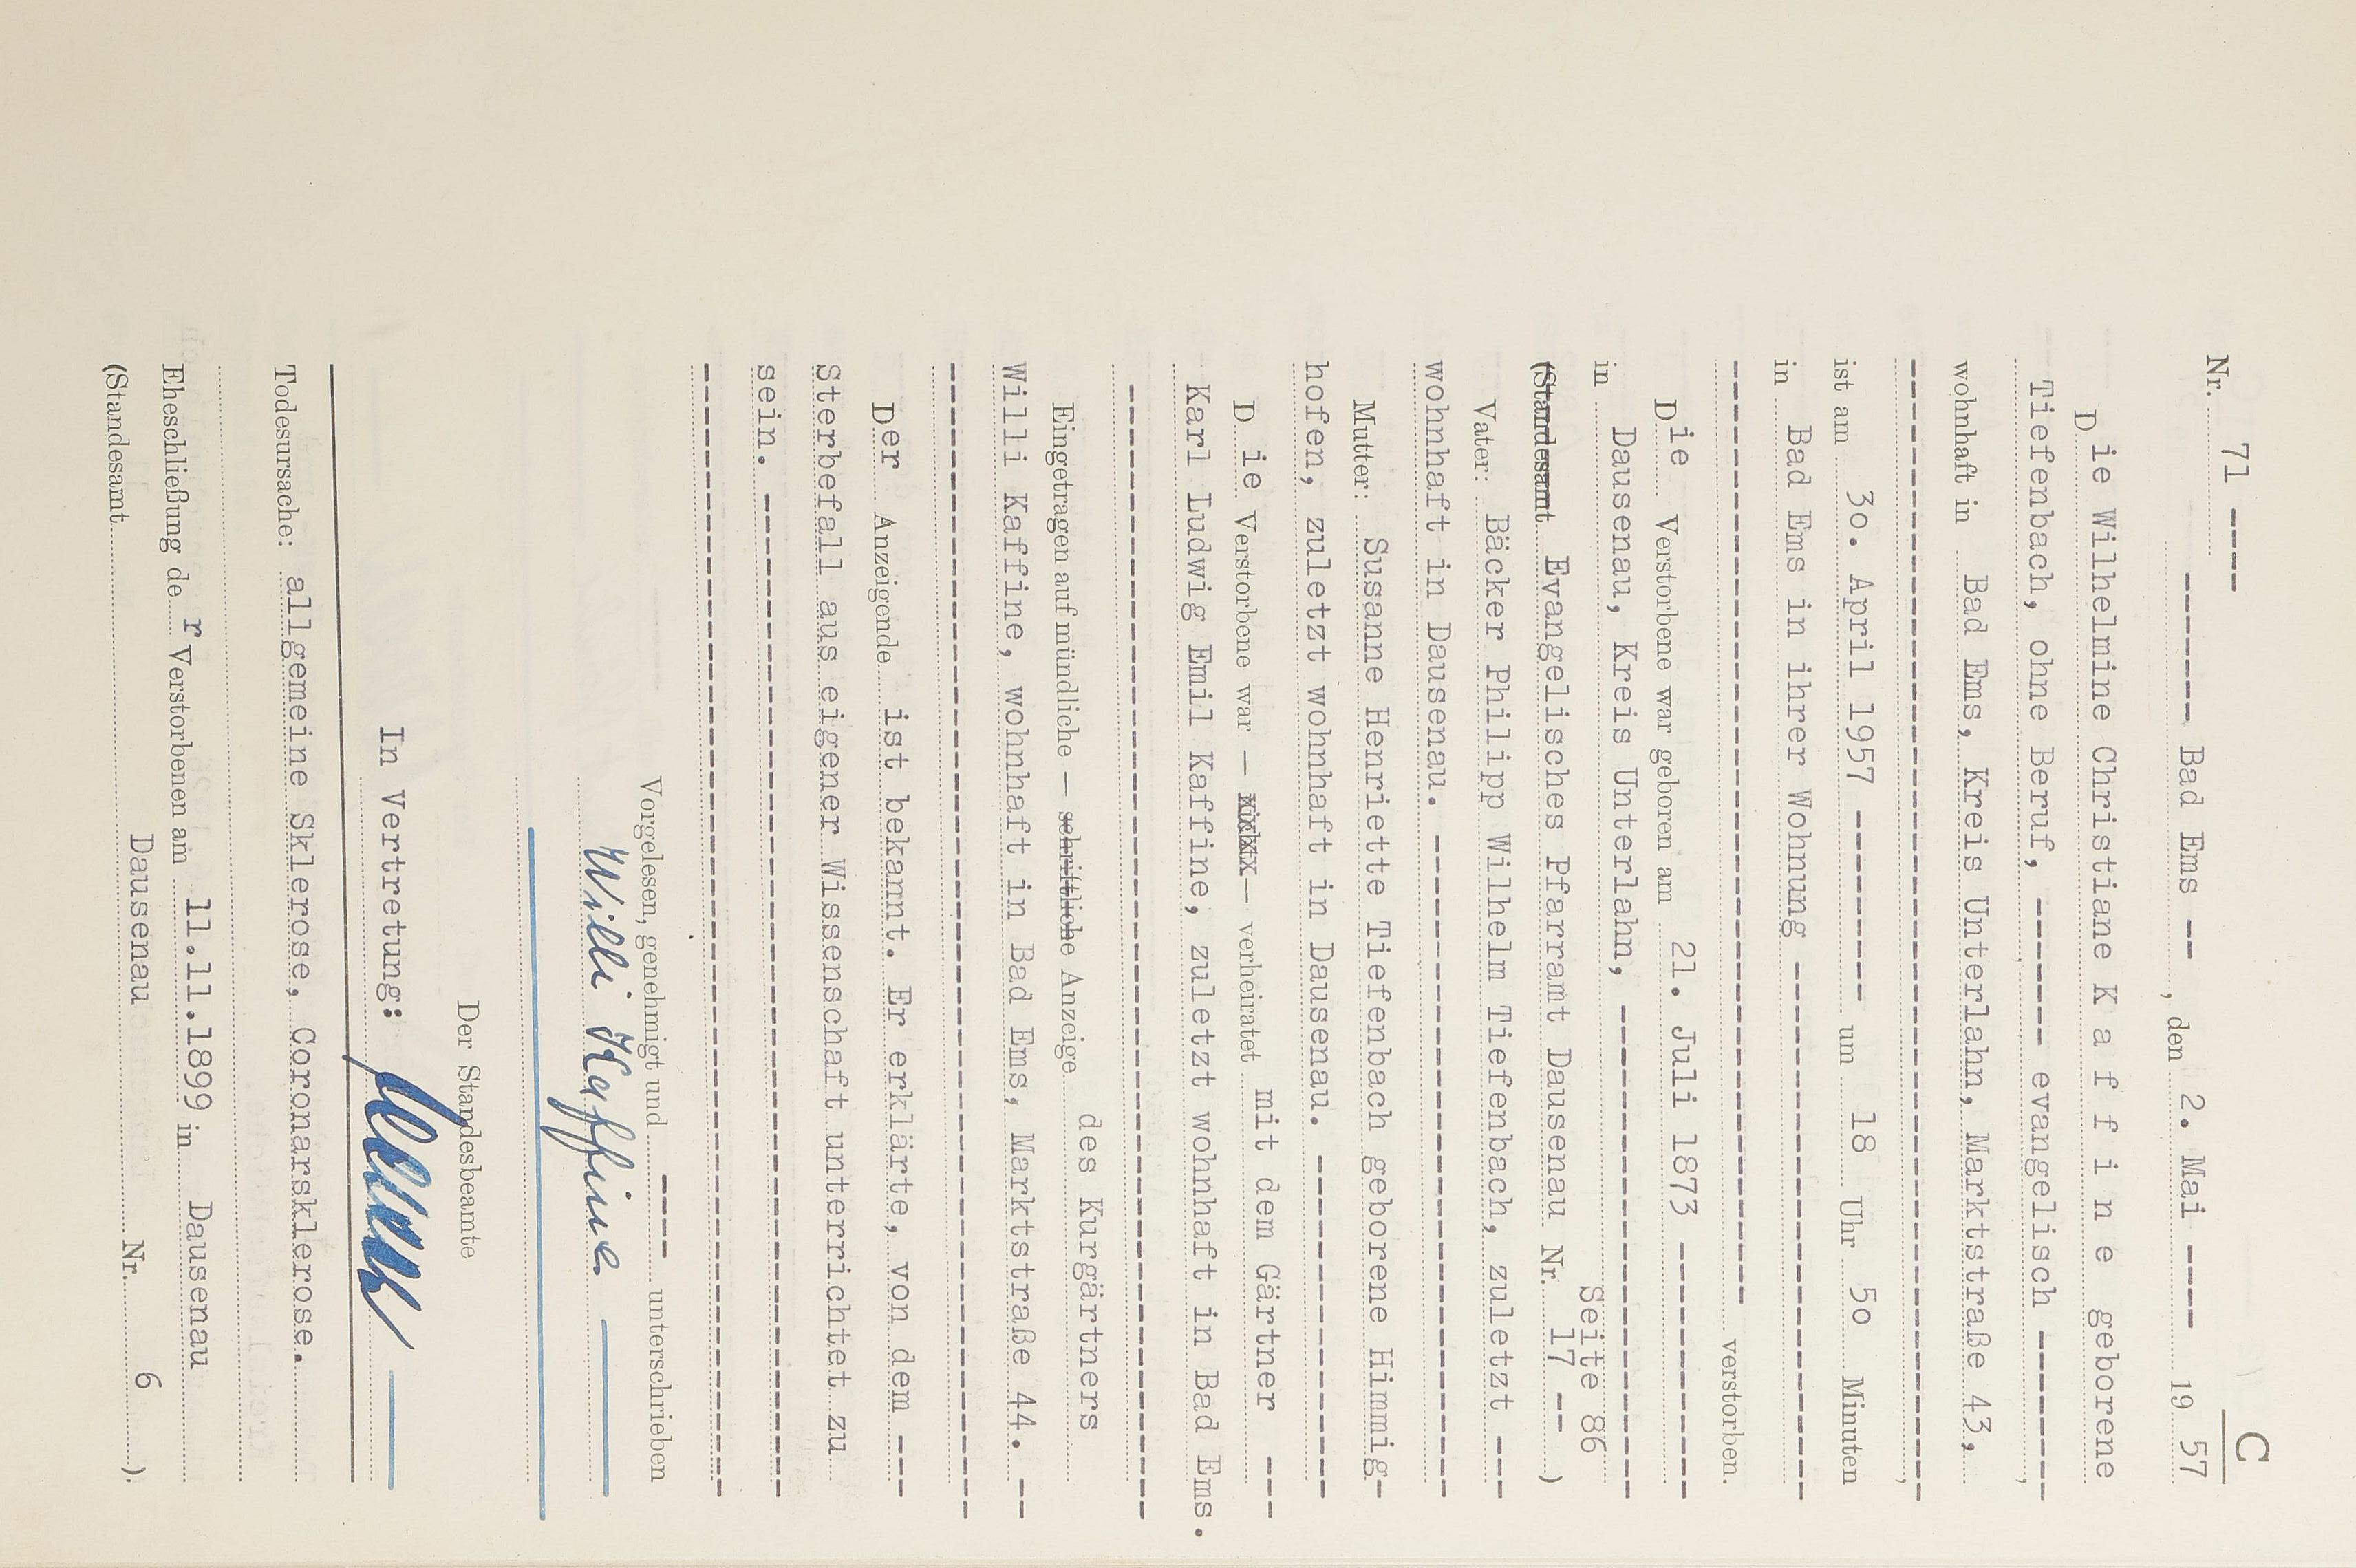 C
Nr. 71 ----
------ Bad Ems -- , den 2. Mai ---- 19 57
Die Wilhelmine Christiane K a f f i n e geborene
Tiefenbach, ohne Beruf, ------ evangelisch -------,
wohnhaft in Bad Ems, Kreis Unterlahn, Marktstraße 43,
-----------------------------------------------,
ist am 3o. April 1957 -------- um 18 Uhr 5o Minuten
in Bad Ems in ihrer Wohnung ----------------------
--------------------------------------- verstorben.
Die Verstorbene war geboren am 21. Juli 1873 ----------
in Dausenau, Kreis Unterlahn, --------------------
Seite 86
(Standesamt Evangelisches Pfarramt Dausenau Nr. 17 -- )
Vater: Bäcker Philipp Wilhelm Tiefenbach, zuletzt ---
wohnhaft in Dausenau. ---------------------------
Mutter: Susanne Henriette Tiefenbach geborene Himmig-
hofen, zuletzt wohnhaft in Dausenau. --------------
Die Verstorbene war — nicht — verheiratet mit dem Gärtner ---
Karl Ludwig Emil Kaffine, zuletzt wohnhaft in Bad Ems.
-----------------------------------------------
Eingetragen auf mündliche — schriftliche Anzeige des Kurgärtners
Willi Kaffine, wohnhaft in Bad Ems, Marktstraße 44. --
-----------------------------------------------
Der Anzeigende ist bekannt. Er erklärte, von dem ---
Sterbefall aus eigener Wissenschaft unterrichtet zu
sein. ------------------------------------------
-----------------------------------------------
Vorgelesen, genehmigt und ---- unterschrieben
Willi Kaffine
Der Standesbeamte
In Vertretung:
Todesursache: allgemeine Sklerose, Coronarsklerose.
Eheschließung der Verstorbenen am 11.11.1899 in Dausenau
(Standesamt Dausenau Nr. 6 ).